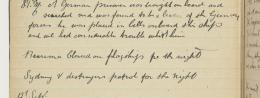 A German prisoner was brought on board and
searched and was found to be a of the German
forces he was placed in cells onboard the ship
and we had considerable trouble with him
Warrima closed on flagships for the night
Sydney & destroyers patrol for the night
Sept.